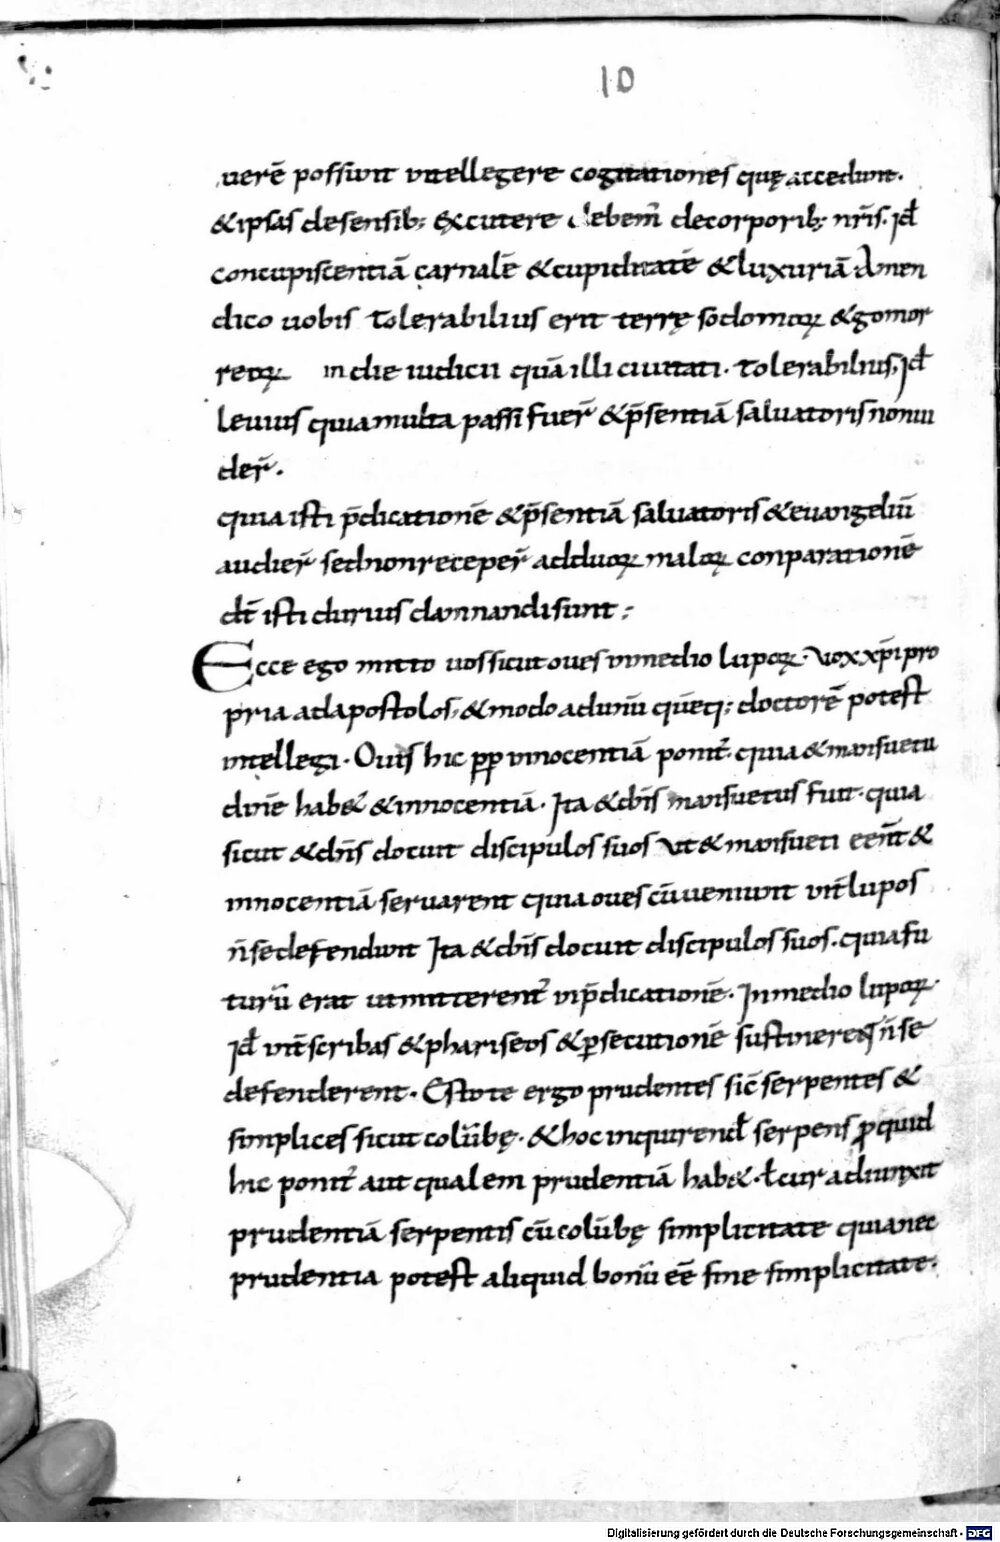 10
uerē possunt intellegere cogitationes quę accedunt.
&ipsas desensib; excutere debem̄ decorporib; nr̄is. id̄
concupiscentiā carnalē &cupiditatē &luxuriā Amen
dico uobis tolerabilius erit terrę sodomoꝝ &gomor
reoꝝ in die iudicii quā illi ciuitati. tolerabilius, id̄
leuius quia multa passi fuer̄ &p̄sentiā saluatoris nonui
der̄.
quia isti p̄dicationē &p̄sentiā saluatoris &euangeliū
audier̄ sed non receper̄ adduoꝝ maloꝝ conparationē
dt̄ isti durius damnandi sunt;
Ecce ego mitto uos sicut oues inmedio lupoꝝ. Vox xp̄i pro
pria ad apostolos, &modo aduniū quēq; doctorē potest
intellegi. Ouis hic pp̄ innocentiā ponit̄. quia &mansuetu
dinē hab& &innocentiā. Ita &dn̄s mansuetus fuit. quia
sicut &dn̄s docuit discipulos suos ut &mansueti eēnt &
innocentiā seruarent quia oues cū ueniunt int̄ lupos
n̄ se defendunt Ita &dn̄s docuit discipulos suos. quia fu
turū erat ut mitterent̄ inp̄dicationē. Inmedio lupoꝝ.
id̄ int̄ scribas &phariseos &ꝑsecutionē sustinere& n̄ se
defenderent. Estote ergo prudentes sic̄ serpentes &
simplices sicut colūbę. &hoc inquirend̄ serpens ꝓquid
hic ponit̄ aut qualem prudentiā hab&. ł cur adiunxit
prudentiā serpentis cū colūbę simplicitate quia nec
prudentia potest aliquid bonū eē sine simplicitate.
Digitalisierung gefördert durch die Deutsche Forschungsgemeinschaft - DFG